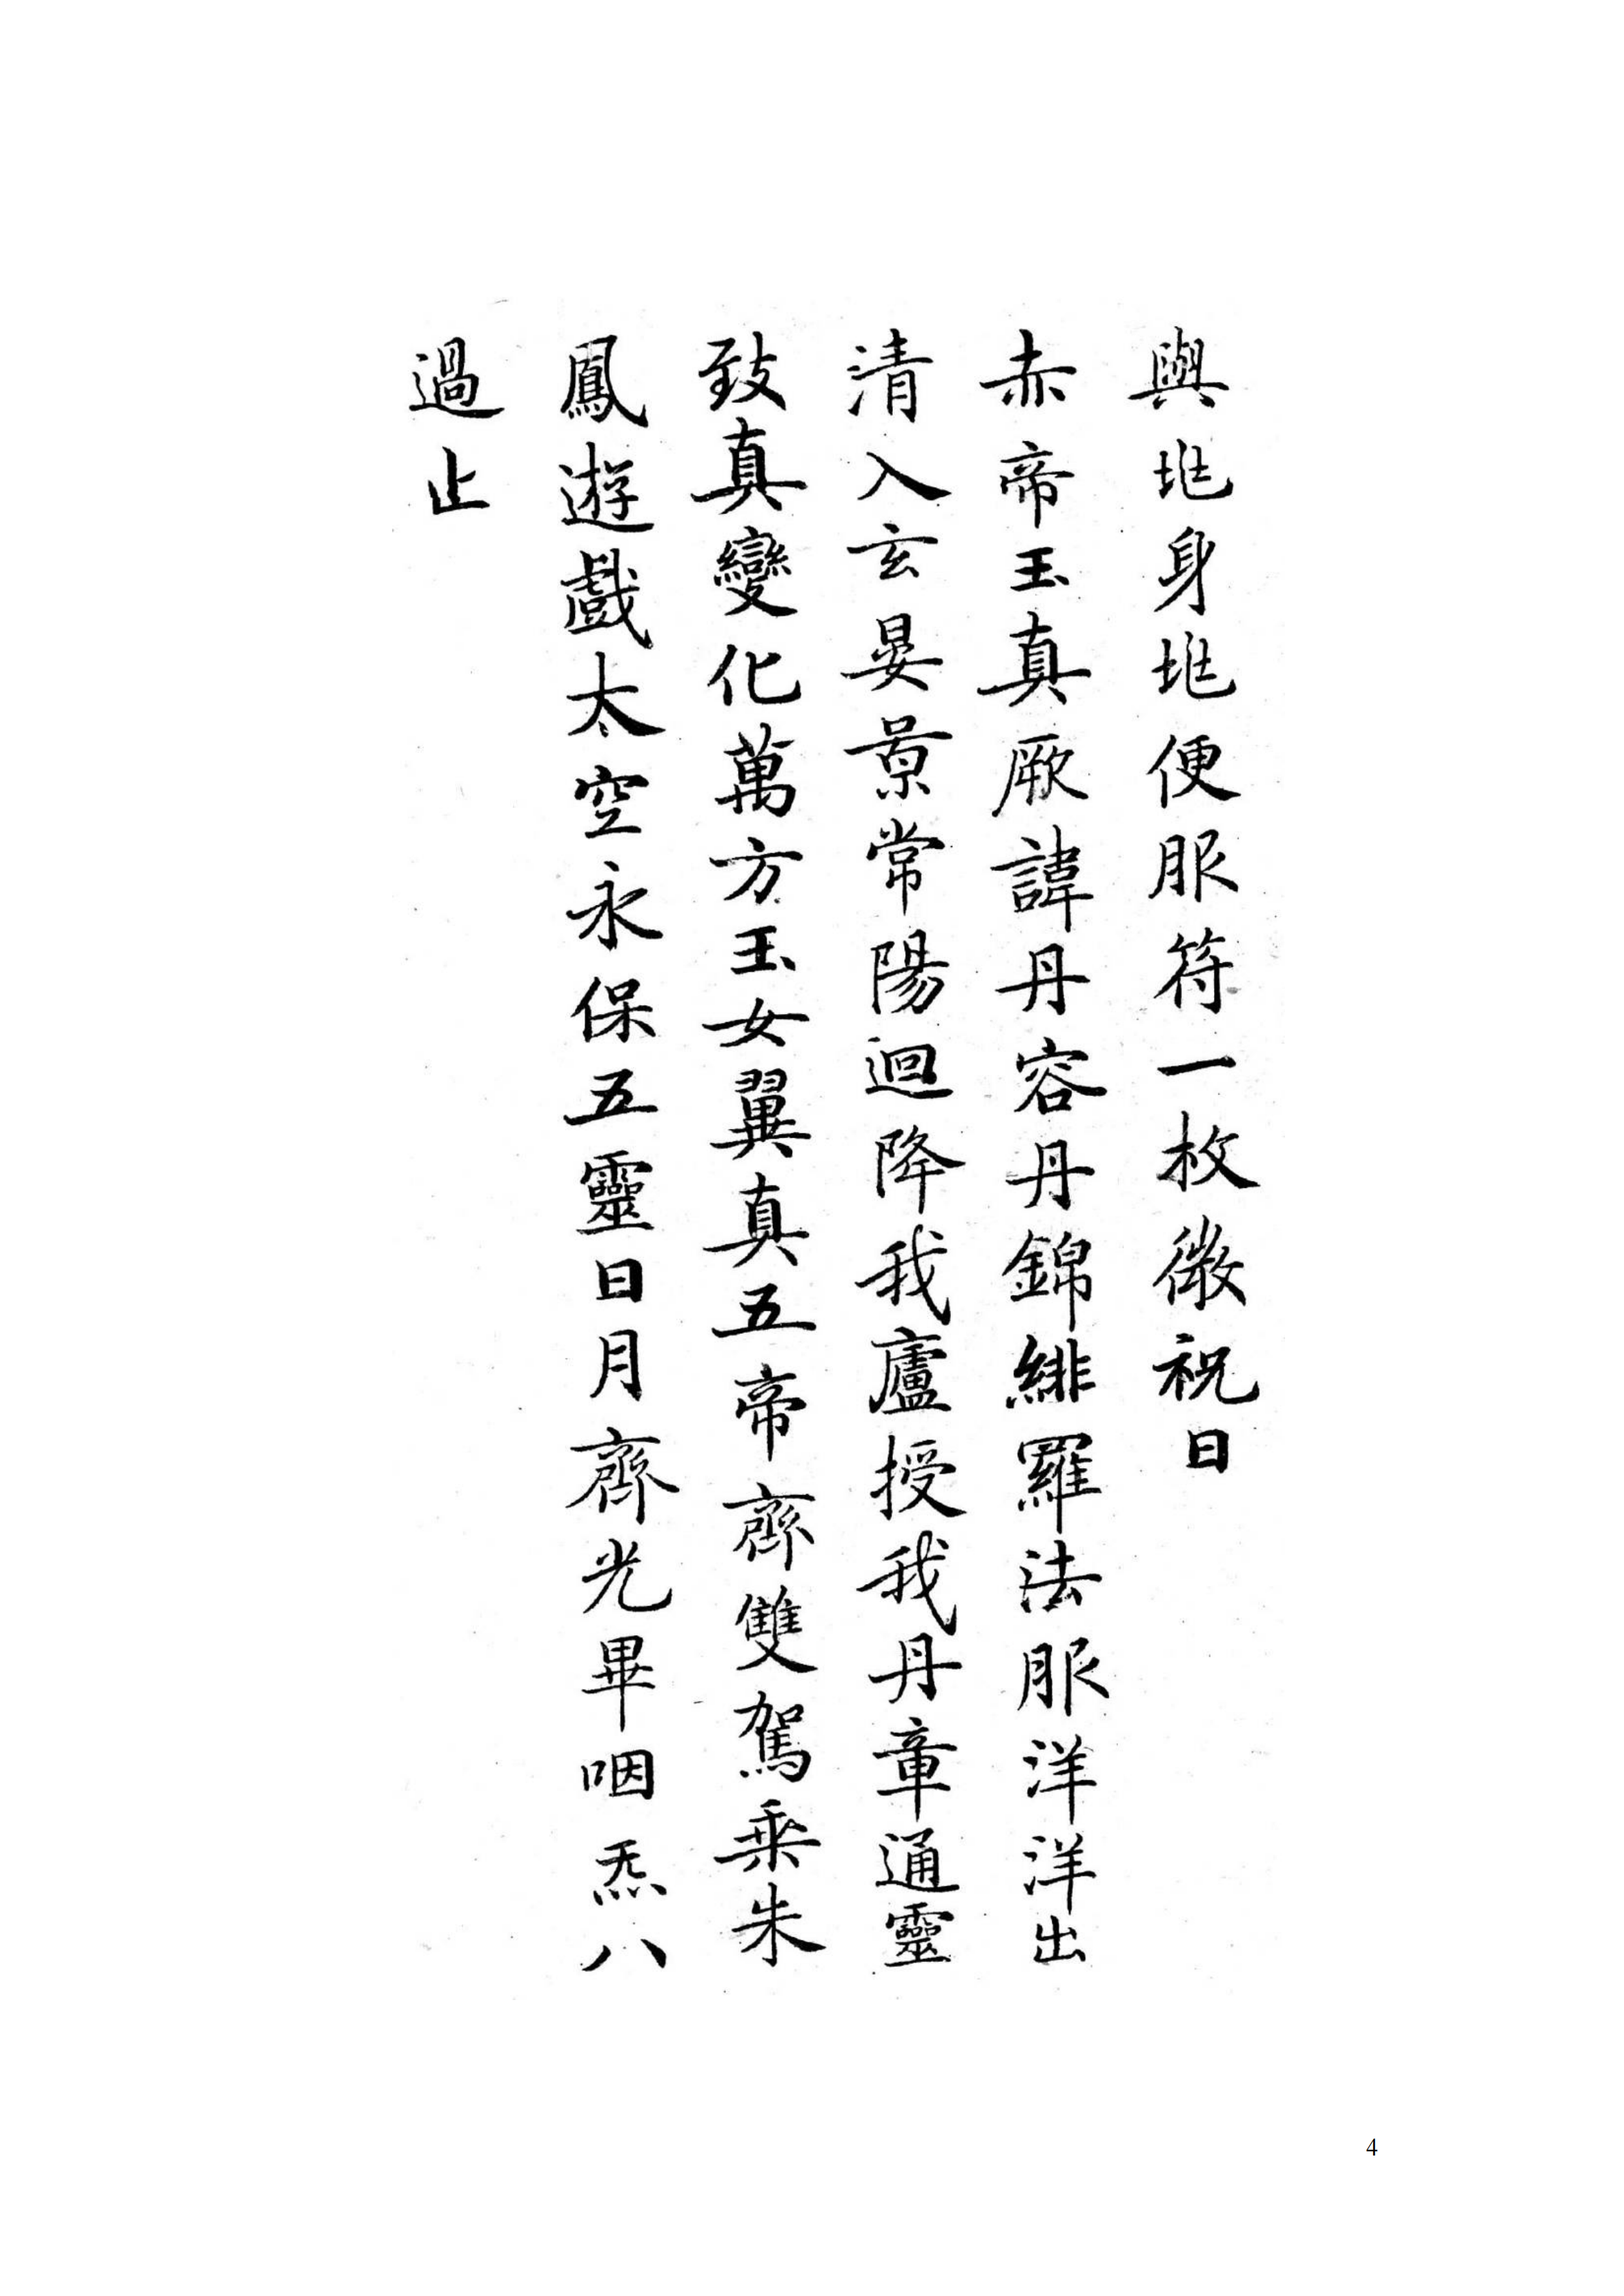 與垗身垗便服符一枚微祝曰
赤帝玉真厥諱丹容丹錦緋羅法服洋洋出
清入玄晏景常陽迴降我廬授我丹章通靈
致真變化萬方玉女翼真五帝齊雙駕乘朱
鳳遊戲太空永保五靈日月齊光畢咽炁八
過止
4